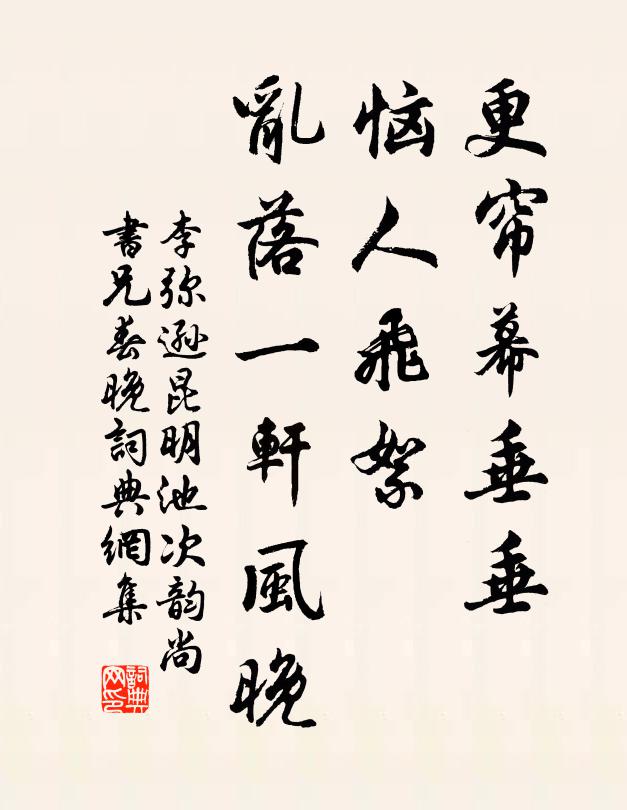 更帘幕垂垂
恼人飛絮
亂落一軒風晚
李弥遜昆明池次韵尚
書兄春晚詞典網集
詞典
网印